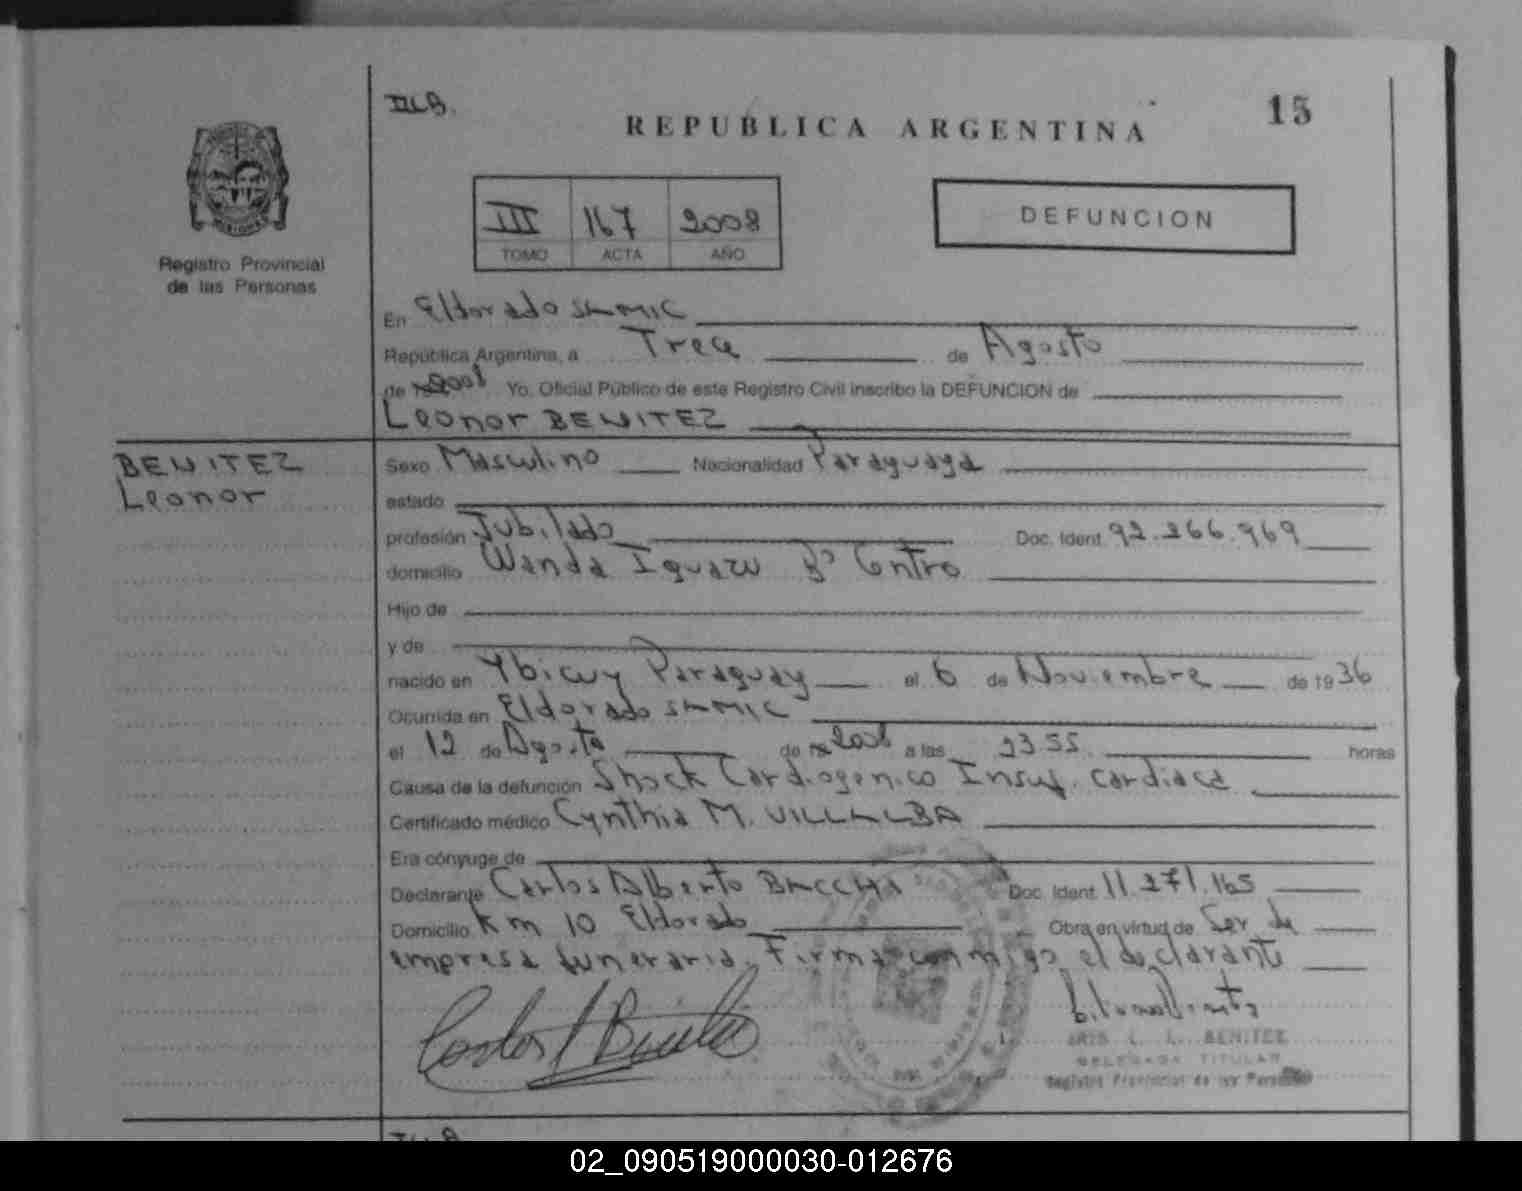 REPUBLICA ARGENTINA
15
III 167 2008
TOMO ACTA AÑO
DEFUNCION
Registro Provincial
de las Personas
En Eldorado SAMIC
República Argentina, a Trece de Agosto
de 2008 Yo, Oficial Público de este Registro Civil inscribo la DEFUNCION de
Leonor BENITEZ
BENITEZ
Leonor
Sexo Masculino Nacionalidad Paraguaya
estado
profesión Jubilado Doc. Ident. 92.266.969
domicilio Wanda Iguazu Bº Centro
Hijo de
y de
nacido en Ybicuy Paraguay el 6 de Noviembre de 1936
Ocurrida en Eldorado SAMIC
el 12 de Agosto de 2008 a las 2355 horas
Causa de la defunción Shock Cardiogenico Insuf. Cardiaca
Certificado médico Cynthia M. VILLALBA
Era cónyuge de
Declarante Carlos Alberto Doc. Ident. 11.271.165
Domicilio Km 10 Eldorado Obra en virtud de Ser de
empresa funeraria. Firma conmigo el declarante
L. BENITEZ
DELEGADA TITULAR
Registro Provincial de las Personas
02_090519000030-012676